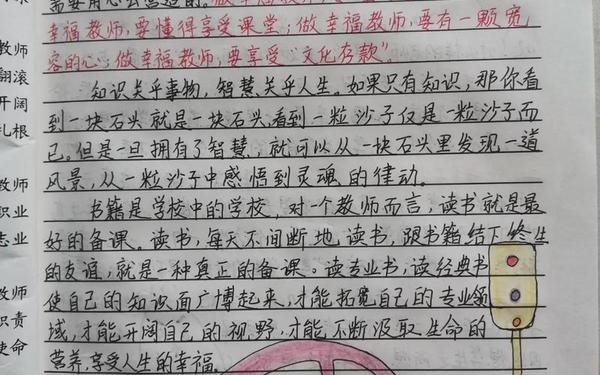 教师
翻滚
开阔
扎根
教师
职业
志业
教师
职责
使命
幸福教师,要懂得享受课堂;做幸福教师,要有一颗宽
容的心;做幸福教师,要享受“文化存款”。
知识关乎事物,智慧关乎人生。如果只有知识,那你看
到一块石头就是一块石头,看到一粒沙子仅是一粒沙子而
已。但是一旦拥有了智慧,就可以从一块石头里发现一道
风景,从一粒沙子中感悟到灵魂的律动。
书籍是学校中的学校,对一个教师而言,读书就是最
好的备课。读书,每天不间断地读书,跟书籍结下终生
的友谊,就是一种真正的备课。读专业书,读经典书
使自己的知识面广博起来,才能拓宽自己的专业领
域,才能开阔自己的视野,才能不断汲取生命的
营养,享受人生的幸福。